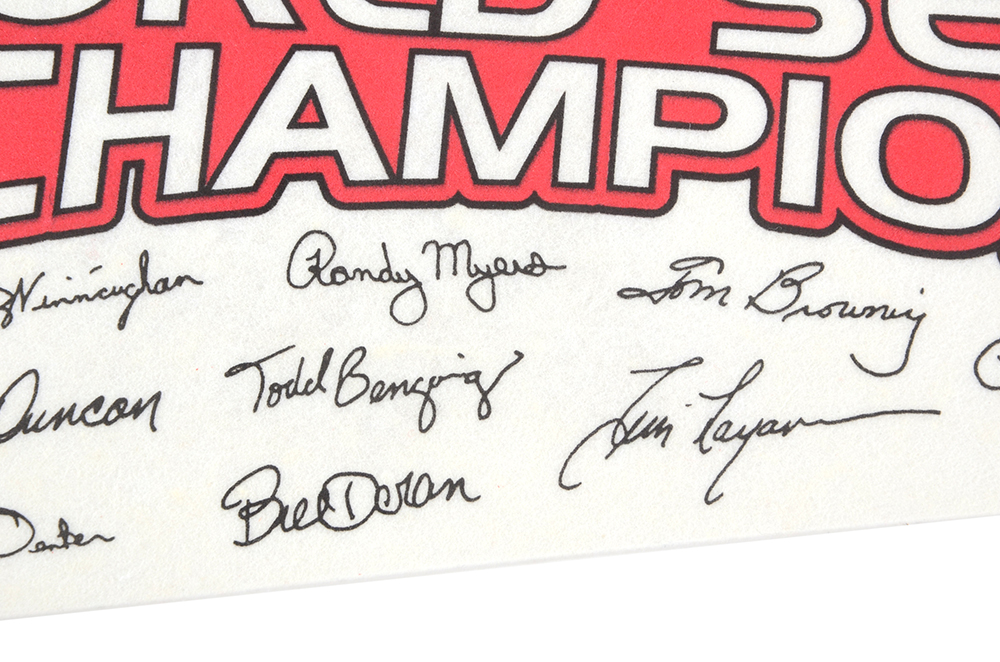 WORLD SE
CHAMPIO
Randy Myers Tom Browning
Duncan Todd Benzinger Tim Layana
Denter Bill Doran